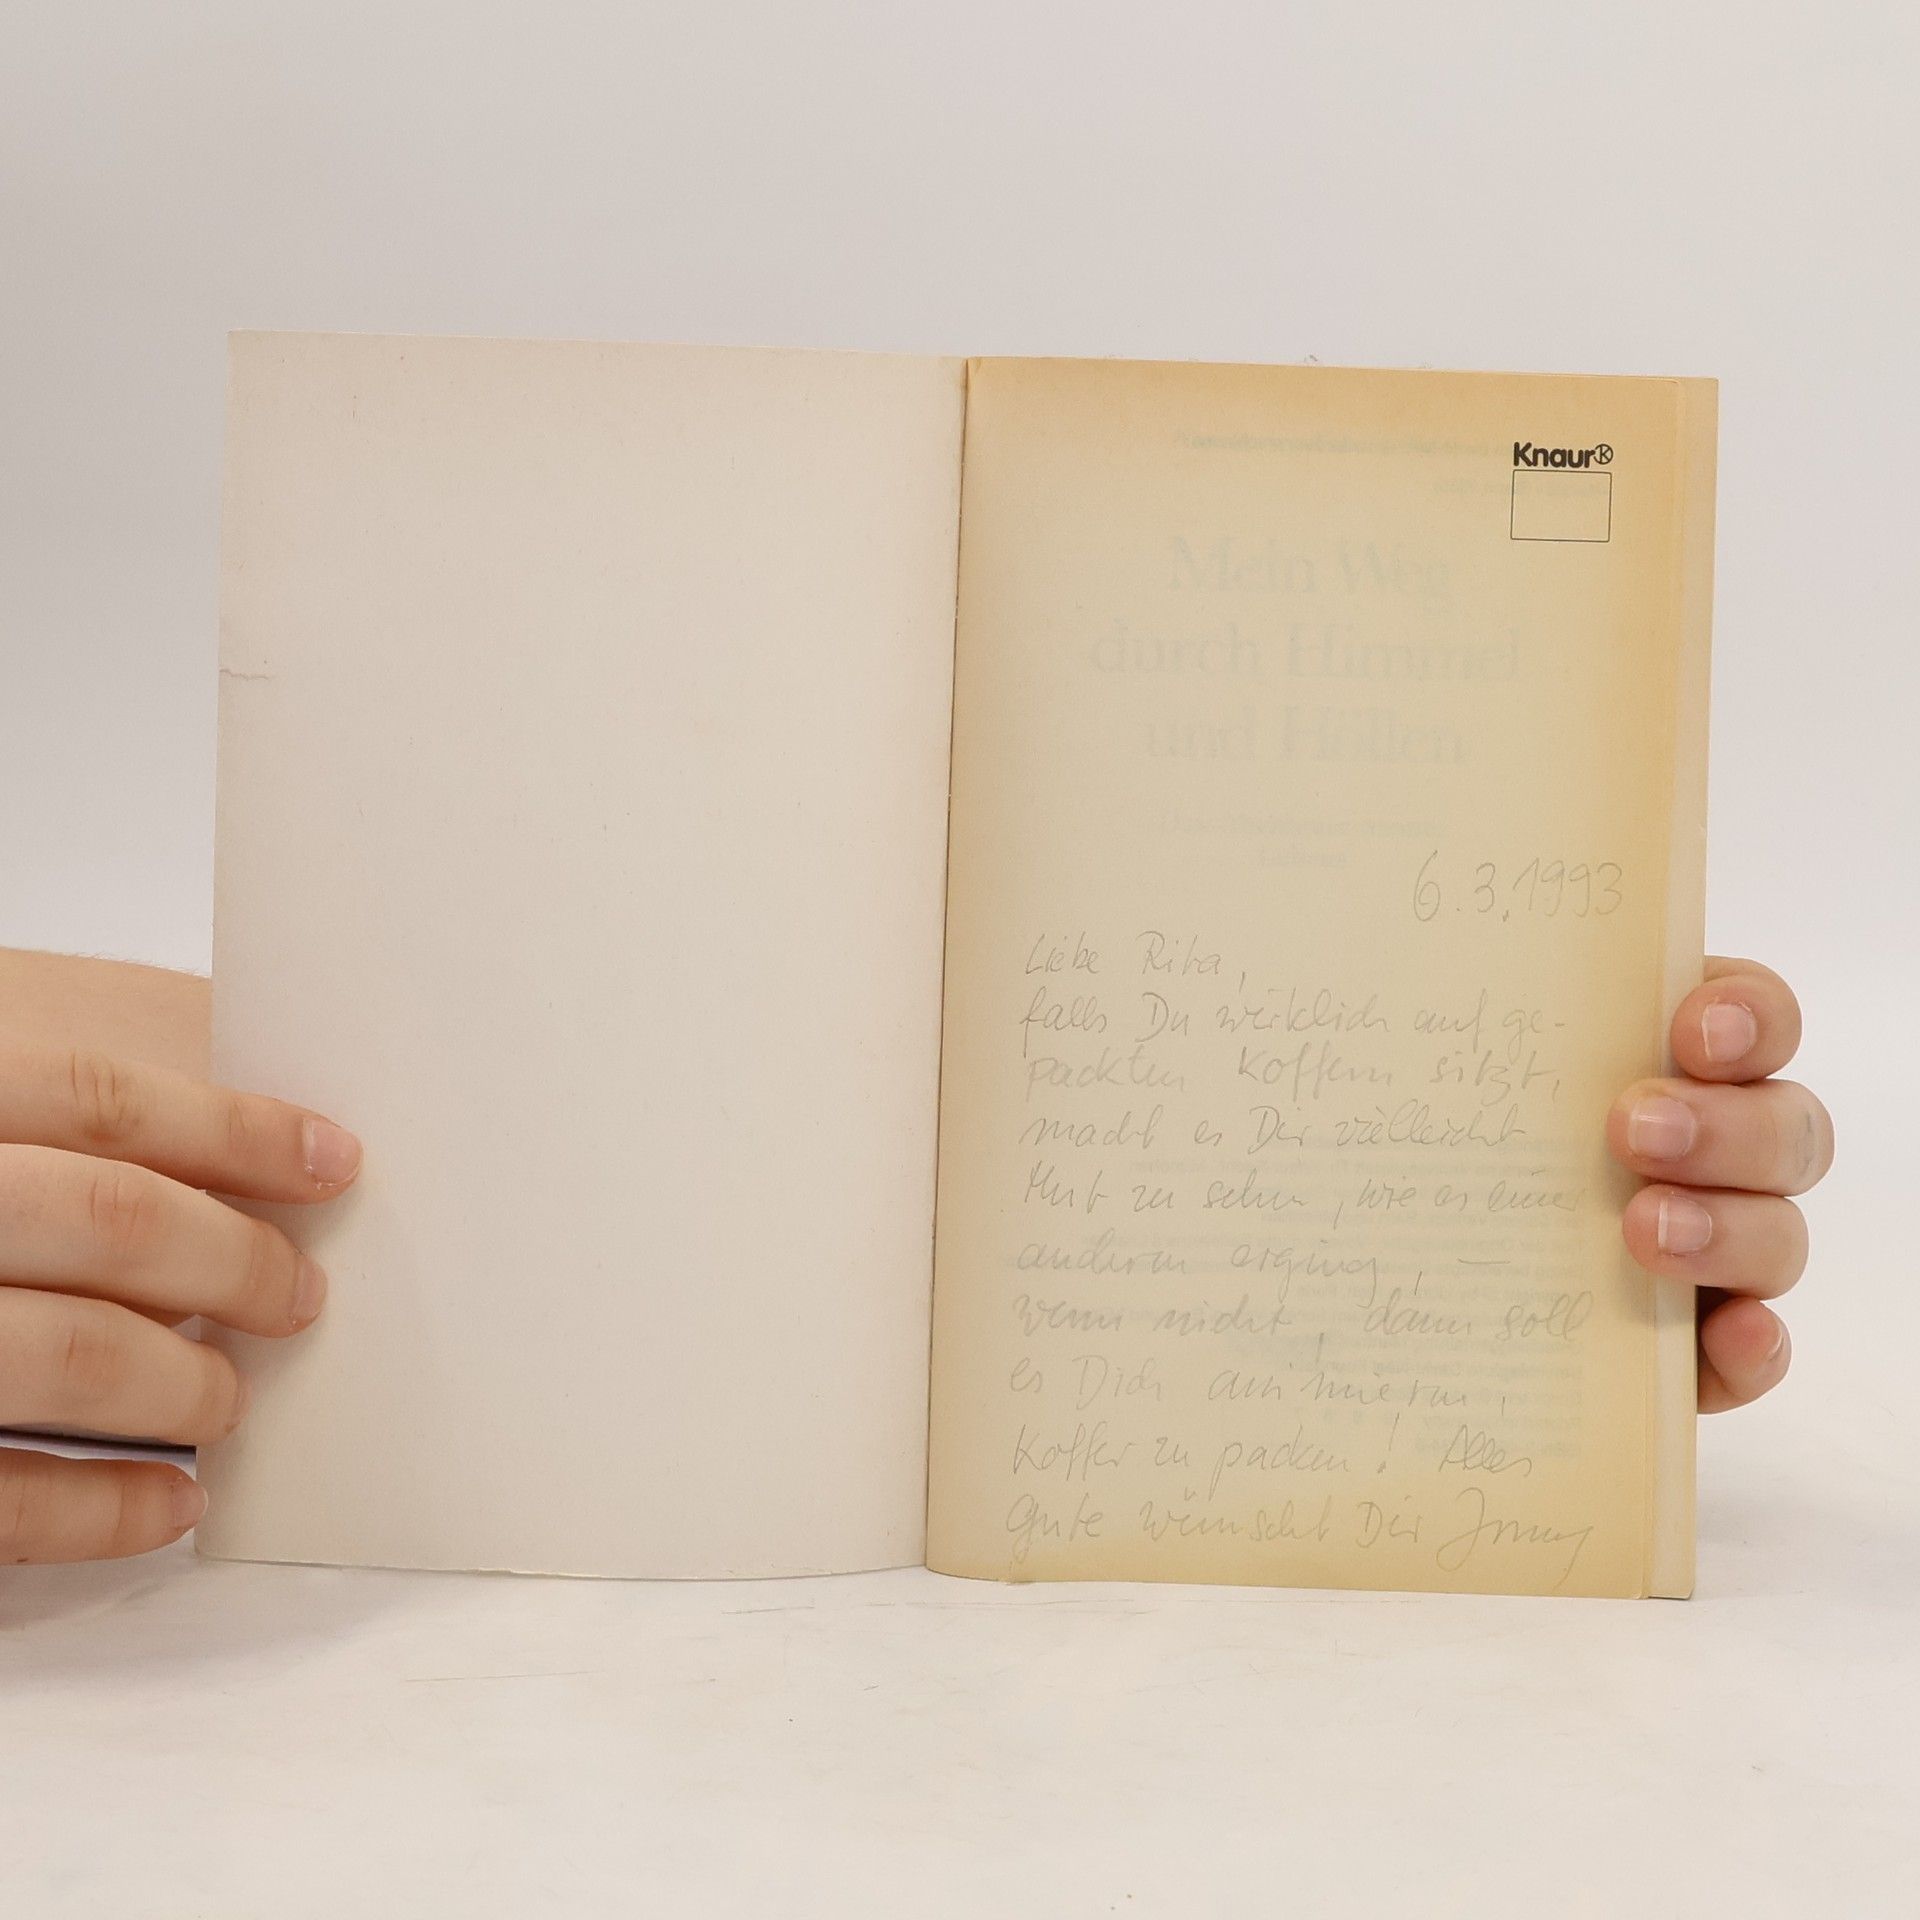 Knaur®
Mein Weg
durch Himmel
und Höllen
6.3.1993
Liebe Rita,
falls Du wirklich auf ge-
packten Koffern sitzt,
macht es Dir vielleicht
Mut zu sehen, wie es einer
anderen erging, –
wenn nicht, dann soll
es Dich animieren,
Koffer zu packen! Alles
Gute wünscht Dir